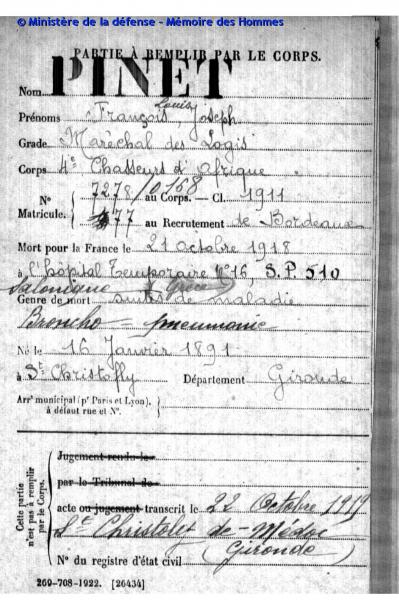 © Ministère de la défense - Mémoire des Hommes
PARTIE À REMPLIR PAR LE CORPS.
Nom PINET
Louis
Prénoms François Joseph
Grade Maréchal des Logis
Corps 4e Chasseurs d'Afrique
N° 7278/0158 au Corps. — Cl. 1911
Matricule. 77 au Recrutement de Bordeaux
Mort pour la France le 21 octobre 1918
à l'hôpital Temporaire N°16, S.P. 510
Salonique Grèce
Genre de mort suites de maladie
Broncho = pneumonie
Né le 16 Janvier 1891
à St Christoffy Département Gironde
Arrt municipal (pr Paris et Lyon),
à défaut rue et N°.
Cette partie
n'est pas à remplir
par le Corps.
Jugement rendu le
par le Tribunal de
acte ou jugement transcrit le 22 Octobre 1919
St Christoly de-Médoc
(Gironde)
N° du registre d'état civil
269-708-1922. [26434]